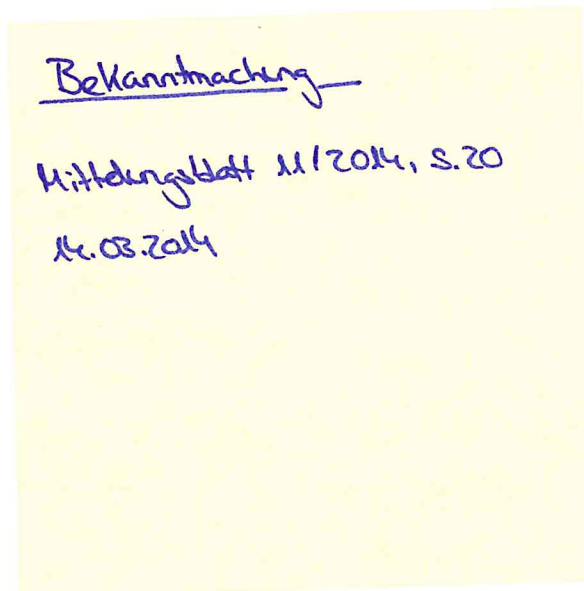 Bekanntmachung
Mitteilungsblatt 11/2014, S.20
14.03.2014